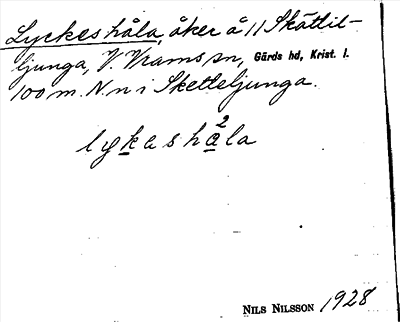 Lyckeshåla, åker å 11 Skättil-
ljunga, V. Vrams sn, Gärds hd, Krist. l.
100 m. N n i Sketteljunga.
lykashå²la
NILS NILSSON 1928